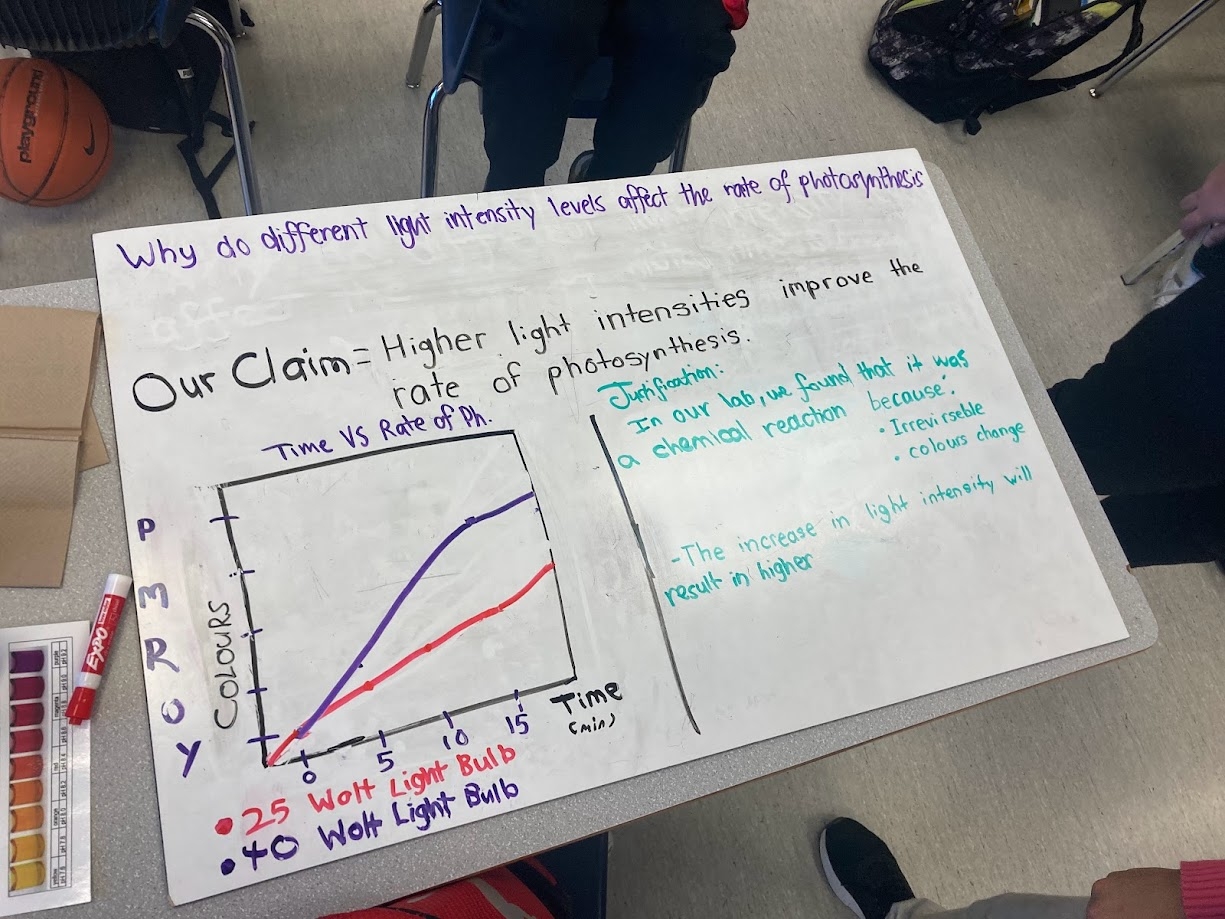 Why do different light intensity levels affect the rate of photosynthesis
Our Claim = Higher light intensities improve the
rate of photosynthesis.
Time VS Rate of Ph.
P
M
R
O
Y
COLOURS
0
5
10
15
Time
(min)
• 25 Wolt Light Bulb
• 40 Wolt Light Bulb
Justification:
In our lab, we found that it was
a chemical reaction because:
• Irrevirseble
• colours change
-The increase in light intensity will
result in higher
playground
EXPO
purple
pH 9.2
magenta
red
orange
yellow
pH 7.6